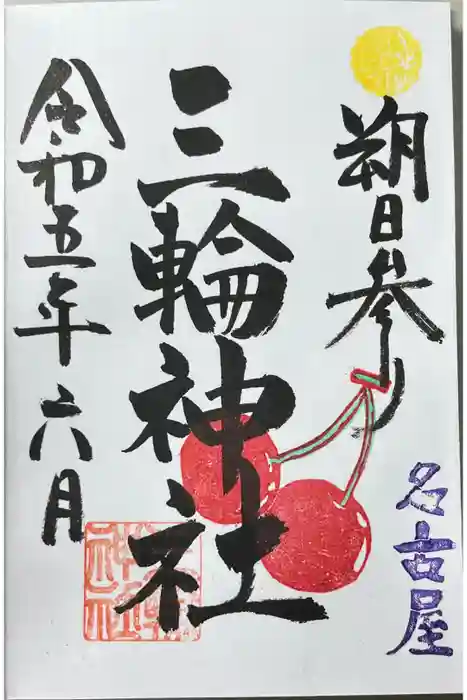 朔日参り
名古屋
三輪神社
令和五年六月